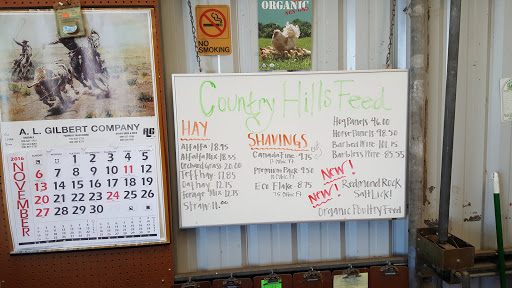 NO
SMOKING
ORGANIC
Country Hills Feed
HAY
Alfalfa 18.95
Alfalfa Mix 18.55
Orchard Grass 20.00
Teff hay 17.85
Oat hay 12.75
Forage Mix 12.75
Straw 11.00
SHAVINGS
Canada Fine 9.75
Premium Pack 9.50
Eco Flake 8.75
Hog Panels 46.00
Horse Panels 98.50
Barbed Wire 101.75
Barbless Wire 85.55
NEW!
Redmond Rock
Salt Lick!
NEW!
Organic Poultry Feed
A. L. GILBERT COMPANY
2016
NOVEMBER
SUN MON TUE WED THU FRI SAT
1 2 3 4 5
6 7 8 9 10 11 12
13 14 15 16 17 18 19
20 21 22 23 24 25 26
27 28 29 30